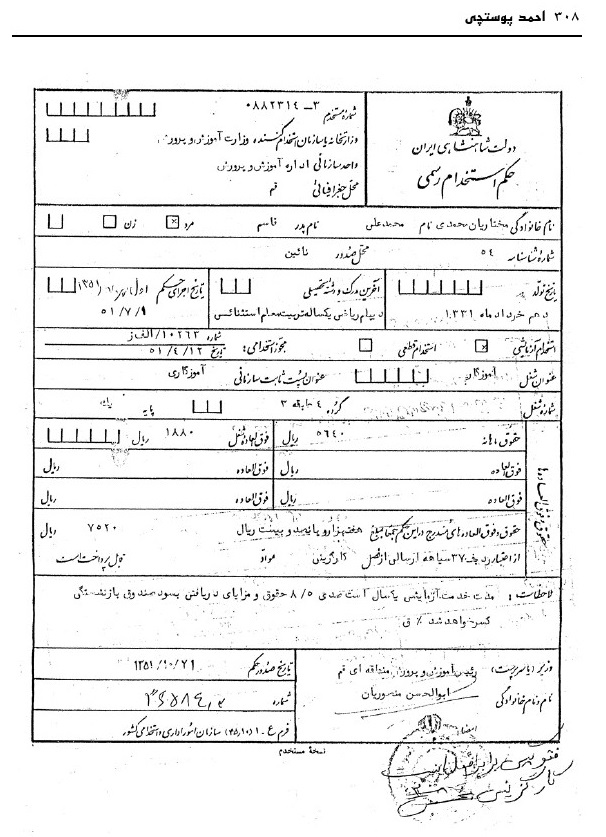 ۳۰۸ احمد پوستچی
دولت شاهنشاهی ایران
حکم استخدام رسمی
شماره مستخدم ۳-۰۸۸۲۳۱۴
وزارتخانه یا سازمان استخدام کننده وزارت آموزش و پرورش
واحد سازمانی اداره آموزش و پرورش
محل جغرافیائی قم
نام خانوادگی مختاریان محمدی نام محمدعلی نام پدر قاسم مرد x زن
شماره شناسنامه ۵۴ محل صدور نائین
تاریخ تولد
دهم خرداد ماه ۱۳۳۱
آخرین مدرک و رشته تحصیلی
دیپلم ریاضی یکساله تربیت معلم استثنائی
تاریخ اجرای حکم
۵۱/۷/۹
استخدام آزمایشی x استخدام قطعی مجوز استخدامی: شماره ۱۰۲۶۳/الف ز
تاریخ ۵۱/۴/۱۲
عنوان شغل آموزگار عنوان پست ثابت سازمانی آموزگاری
شماره شغل گروه ۴ طبقه ۳ پایه
حقوق و فوق العاده ها
حقوق ماهانه ۵۶۴۰ ریال فوق العاده شغل ۱۸۸۰ ریال
فوق العاده ریال فوق العاده ریال
فوق العاده ریال فوق العاده ریال
حقوق و فوق العاده های مندرج در این حکم جمعا بمبلغ هفت هزار و پانصد و بیست ریال ۷۵۲۰ ریال
از اعتبار ردیف ۳۷ سیاهه ارسالی از فصل کارگزینی مواد قابل پرداخت است
ملاحظات: مدت خدمت آزمایشی یکسال است صدی ۸/۵ حقوق و مزایای دریافتی بسود صندوق بازنشستگی
کسر خواهد شد ق
وزیر (یا سرپرست) رئیس آموزش و پرورش منطقه ای قم
نام و نام خانوادگی ابوالحسن منصوریان
امضاء
تاریخ صدور حکم ۱۳۵۱/۱۰/۲۱
شماره
فرم ع-۱ (۴۵،۱۰) سازمان امور اداری و استخدامی کشور
نسخه مستخدم